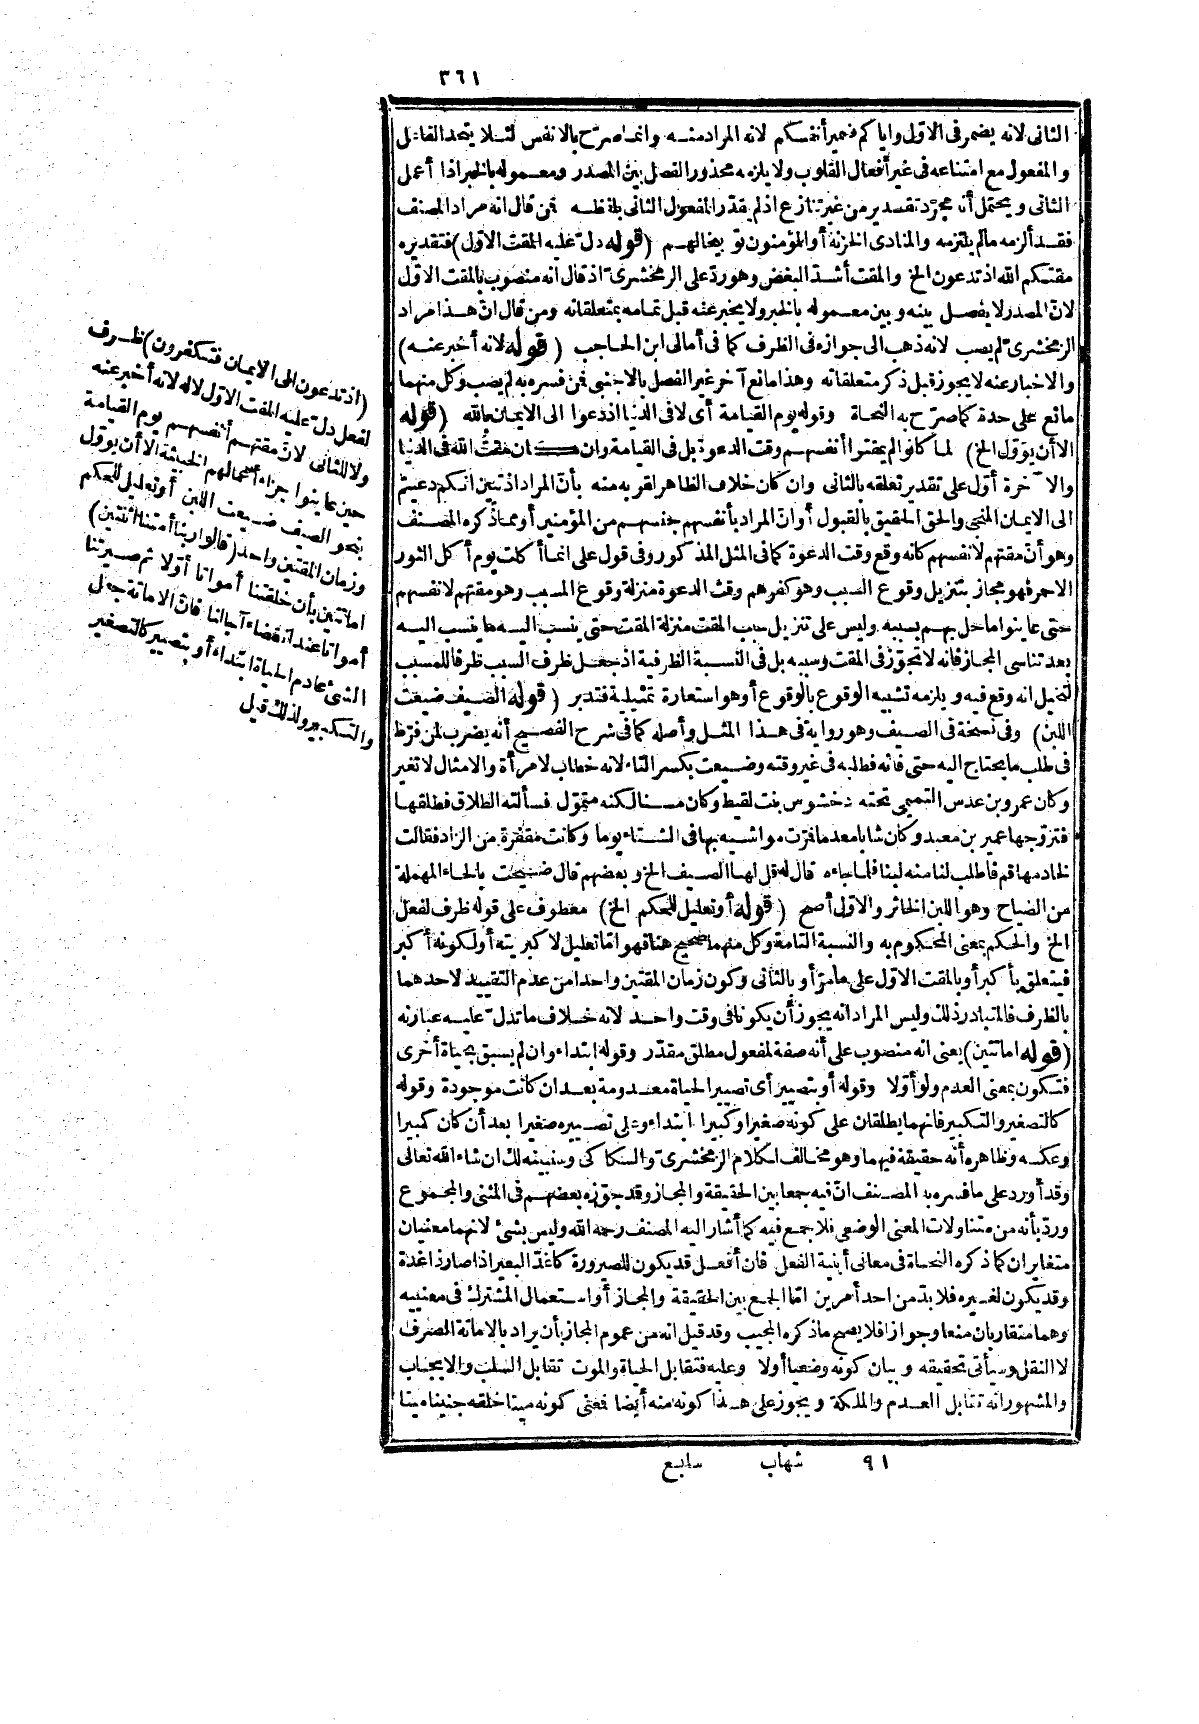 ٣٦١
الثانى لانه يضمر فى الاوّل واياكم ضمير أنفسكم لانه المراد منه وانما صرّح بالانفس لئلا يتحد الفاعل
والمفعول مع امتناعه فى غير أفعال القلوب ولا يلزمه محذور الفصل بين المصدر ومعموله بالخبر اذا أعمل
الثانى ويحتمل أنه مجرّد تفسير من غير تنازع اذ لم يقدّر المفعول الثانى بلفظه فمن قال انه مراد المصنف
فقد ألزمه ما لم يلتزمه والمنادى الخزنة أو المؤمنون توبيخا لهم (قوله دلّ عليه المقت الاوّل) فتقديره
مقتكم الله اذ تدعون الخ والمقت أشدّ البغض وهو ردّ على الزمخشرىّ اذ قال انه منصوب بالمقت الاوّل
لانّ المصدر لا يفصل بينه وبين معموله بالخبر ولا يخبر عنه قبل تمامه بمتعلقاته ومن قال انّ هذا مراد
الزمخشرىّ لم يصب لانه ذهب الى جوازه فى الظرف كما فى أمالى ابن الحاجب (قوله لانه أخبر عنه)
والاخبار عنه لا يجوز قبل ذكر متعلقاته وهذا مانع آخر غير الفصل بالاجنبى فمن فسره به لم يصب وكل منهما
مانع على حدة كما صرّح به النحاة وقوله يوم القيامة أى لا فى الدنيا اذ دعوا الى الايمان بالله (قوله
الا أن يؤوّل الخ) لما كانوا لم يمقتوا أنفسهم وقت الدعوة بل فى القيامة وان كان مقت الله فى الدنيا
والآخرة أوّل على تقدير تعلقه بالثانى وان كان خلاف الظاهر لقربه منه بأنّ المراد اذ تبين انكم دعيتم
الى الايمان المنجى والحق الحقيق بالقبول أو انّ المراد بأنفسهم جنسهم من المؤمنين أو مما ذكره المصنف
وهو أنّ مقتهم لانفسهم كانه وقع وقت الدعوة كما فى المثل المذكور وفى قول على انما أكلت يوم أكل الثور
الاحمر فهو مجاز بتنزيل وقوع السبب وهو كفرهم وقت الدعوة منزلة وقوع المسبب وهو مقتهم لانفسهم
حتى عاينوا ما حل بهم بسببه وليس على تنزيل سبب المقت منزلة المقت حتى ينسب اليه ما ينسب اليه
بعد تناسى المجاز فانه لا تجوّز فى المقت وسببه بل فى النسبة الظرفية اذ جعل ظرف السبب ظرفا للمسبب
لتخيل انه وقع فيه ويلزمه تشبيه الوقوع بالوقوع أو هو استعارة تمثيلية فتدبر (قوله الصيف ضيعت
اللبن) وفى نسخة فى الصيف وهو رواية فى هذا المثل وأصله كما فى شرح الفصيح أنه يضرب لمن فرّط
فى طلب ما يحتاج اليه حتى فاته فطلبه فى غير وقته وضيعت بكسر التاء لانه خطاب لامرأة والامثال لا تغير
وكان عمرو بن عدس التميمى تحته دخشوس بنت لقيط وكان مسنا لكنه متموّل فسألته الطلاق فطلقها
فتزوّجها عمير بن معبد وكان شابا معدما فمرّت مواشيه بها فى الشتاء يوما وكانت مقفرة من الزاد فقالت
لخادمها قم فاطلب لنا منه لبنا فلما جاءه قال له قل لها الصيف الخ وبعضهم قال ضيحت بالحاء المهملة
من الضياح وهو اللبن الخاثر والاوّل أصح (قوله أو تعليل للحكم الخ) معطوف على قوله ظرف لفعل
الخ والحكم بمعنى المحكوم به والنسبة التامة وكل منهما صحيح هنا فهو اما تعليل لاكبريته أو لكونه أكبر
فيتعلق بأكبر أو بالمقت الاوّل على ما مرّ أو بالثانى وكون زمان المقتين واحدا من عدم التقييد لاحدهما
بالظرف فالمتبادر ذلك وليس المراد انه يجوز أن يكونا فى وقت واحد لانه خلاف ما تدلّ عليه عبارته
(قوله اماتتين) يعنى انه منصوب على أنه صفة لمفعول مطلق مقدّر وقوله ابتداء وان لم يسبق بحياة أخرى
فتكون بمعنى العدم ولو أوّلا وقوله أو بتصيير أى تصيير الحياة معدومة بعد ان كانت موجودة وقوله
كالتصغير والتكبير فانهما يطلقان على كونه صغيرا وكبيرا ابتداء وعلى تصييره صغيرا بعد أن كان كبيرا
وعكسه وظاهره أنه حقيقة فيهما وهو مخالف لكلام الزمخشرىّ والسكاكى وسنبينه لك ان شاء الله تعالى
وقد أورد على ما فسره به المصنف انّ فيه جمعا بين الحقيقة والمجاز وقد جوّزه بعضهم فى المثنى والمجموع
وردّ بأنه من متناولات المعنى الوضعى فلا جمع فيه كما أشار اليه المصنف رحمه الله وليس بشئ لانهما معنيان
متغايران كما ذكره النحاة فى معانى أبنية الفعل فان أفعل قد يكون للصيرورة كأغدّ البعير اذا صار ذا غدة
وقد يكون لغيره فلا بدّ من احد أمرين امّا الجمع بين الحقيقة والمجاز أو استعمال المشترك فى معنييه
وهما متقاربان منعا وجوازا فلا يصح ما ذكره المجيب وقد قيل انه من عموم المجاز بأن يراد بالاماتة الصرف
لا النقل وسيأتى تحقيقه وبيان كونه وضعيا أولا وعليه فتقابل الحياة والموت تقابل السلب والايجاب
والمشهور انه تقابل العدم والملكة ويجوز على هذا كونه منه أيضا فمعنى كونه ميتا خلقه جنينا ميتا
٩١ شهاب سابع
(اذ تدعون الى الايمان فتكفرون) ظرف
لفعل دلّ عليه المقت الاوّل لا له لانه أخبر عنه
ولا للثانى لانّ مقتهم أنفسهم يوم القيامة
حين عاينوا جزاء أعمالهم الخبيثة الا أن يؤوّل
بنحو الصيف ضيعت اللبن أو تعليل للحكم
وزمان المقتين واحد (قالوا ربنا أمتنا اثنتين)
اماتتين بأن خلقتنا أمواتا أوّلا ثم صيرتنا
أمواتا عند انقضاء آجالنا فانّ الاماتة جعل
الشئ عادم الحياة ابتداء أو بتصيير كالتصغير
والتكبير ولذلك قيل